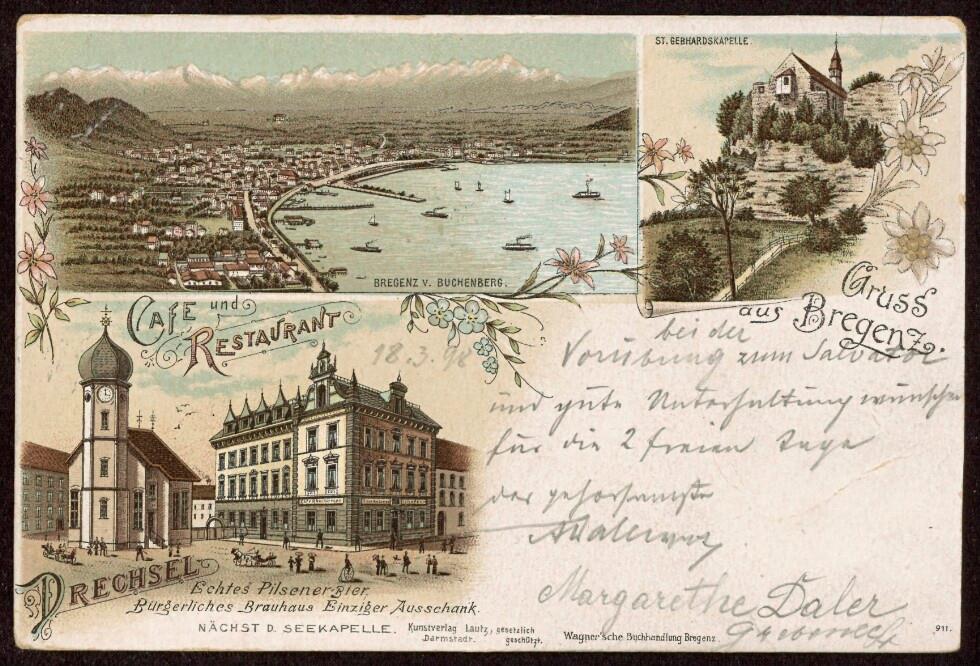 ST. GEBHARDSKAPELLE.
BREGENZ V. BUCHENBERG.
Gruss
aus Bregenz.
CAFE und
RESTAURANT
18.3.98
bei der
Vorübung zum Salvator
und gute Unterhaltung wünschen
für die 2 freien Tage
der gehorsamste
Margarethe Daler
DRECHSEL
Echtes Pilsener-Bier,
Bürgerliches Brauhaus Einziger Ausschank.
NÄCHST D. SEEKAPELLE.
Kunstverlag Lautz, gesetzlich
Darmstadt. geschützt.
Wagner'sche Buchhandlung Bregenz.
911.